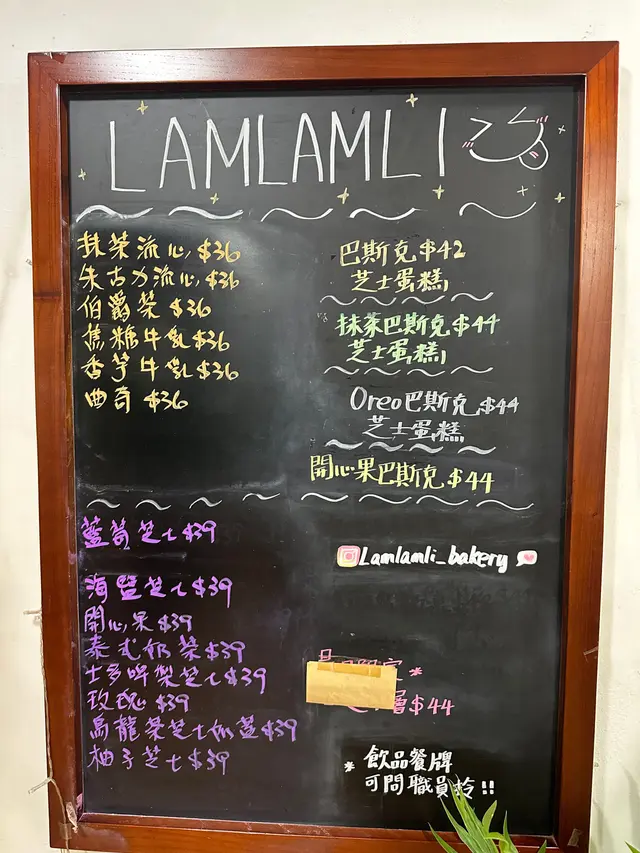 LAMLAMLI
抹茶流心 $36
朱古力流心 $36
伯爵茶 $36
焦糖牛乳 $36
香芋牛乳 $36
曲奇 $36
巴斯克 $42
芝士蛋糕
抹茶巴斯克 $44
芝士蛋糕
Oreo巴斯克 $44
芝士蛋糕
開心果巴斯克 $44
藍莓芝士 $39
海鹽芝士 $39
開心果 $39
泰式奶茶 $39
士多啤梨芝士 $39
玫瑰 $39
烏龍茶芝士奶蓋 $39
柚子芝士 $39
Lamlamli_bakery
*
層 $44
* 飲品餐牌
可問職員拎!!